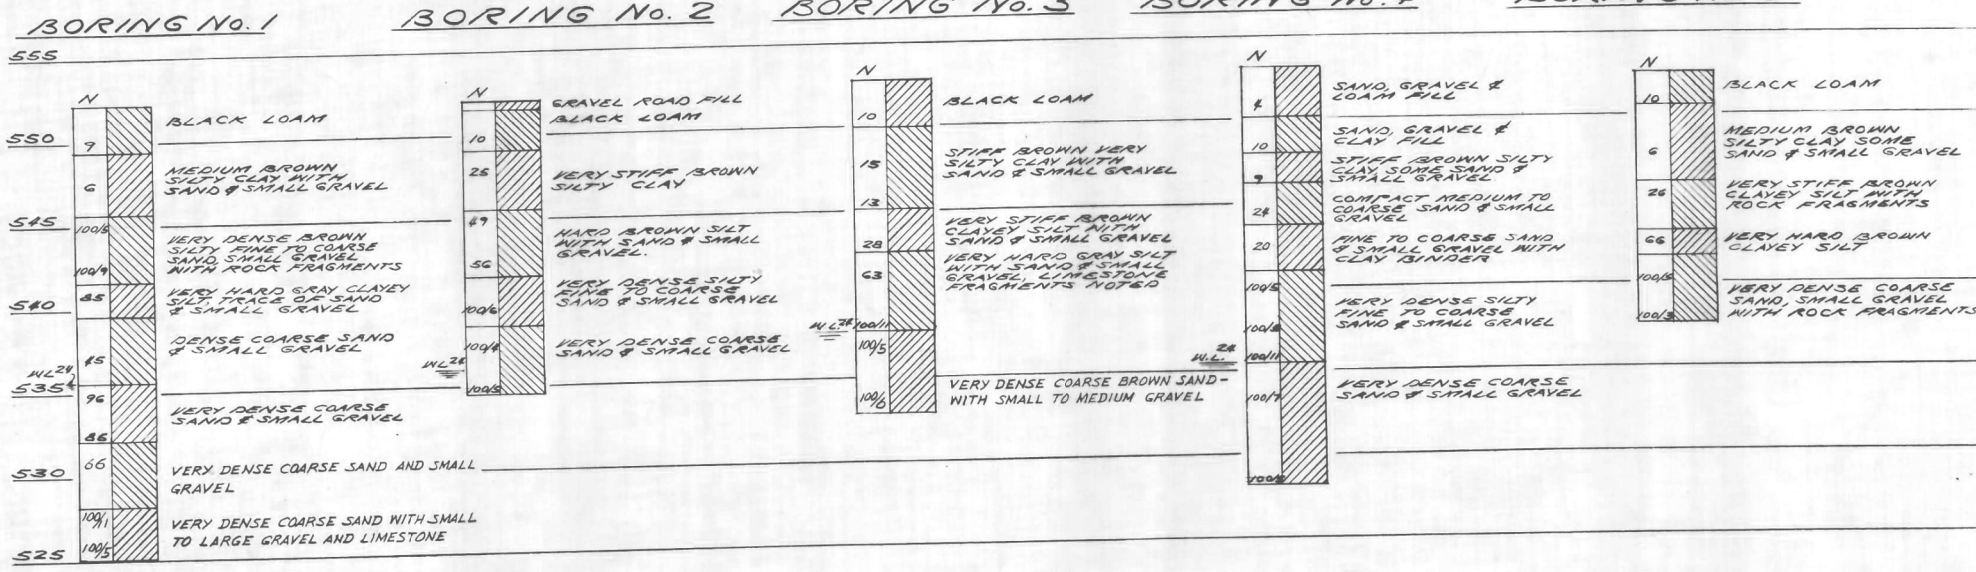 BORING No. 1
BORING No. 2
BORING No. 3
555
550
545
540
535
530
525
N
9
6
100/5
100/9
85
45
WL 24
96
86
66
100/11
100/5
BLACK LOAM
MEDIUM BROWN
SILTY CLAY WITH
SAND & SMALL GRAVEL
VERY DENSE BROWN
SILTY FINE TO COARSE
SAND, SMALL GRAVEL
WITH ROCK FRAGMENTS
VERY HARD GRAY CLAYEY
SILT, TRACE OF SAND
& SMALL GRAVEL
DENSE COARSE SAND
& SMALL GRAVEL
VERY DENSE COARSE
SAND & SMALL GRAVEL
VERY DENSE COARSE SAND AND SMALL
GRAVEL
VERY DENSE COARSE SAND WITH SMALL
TO LARGE GRAVEL AND LIMESTONE
N
10
25
49
56
100/6
100/4
WL 24
100/5
GRAVEL ROAD FILL
BLACK LOAM
VERY STIFF BROWN
SILTY CLAY
HARD BROWN SILT
WITH SAND & SMALL
GRAVEL.
VERY DENSE SILTY
FINE TO COARSE
SAND & SMALL GRAVEL
VERY DENSE COARSE
SAND & SMALL GRAVEL
N
10
15
13
28
63
WL 24
100/11
100/5
100/6
BLACK LOAM
STIFF BROWN VERY
SILTY CLAY WITH
SAND & SMALL GRAVEL
VERY STIFF BROWN
CLAYEY SILT WITH
SAND & SMALL GRAVEL
VERY HARD GRAY SILT
WITH SAND & SMALL
GRAVEL, LIMESTONE
FRAGMENTS NOTED
VERY DENSE COARSE BROWN SAND-
WITH SMALL TO MEDIUM GRAVEL
N
4
10
9
24
20
100/5
100/8
W.L. 24
100/11
100/7
SAND, GRAVEL &
LOAM FILL
SAND, GRAVEL &
CLAY FILL
STIFF BROWN SILTY
CLAY, SOME SAND &
SMALL GRAVEL
COMPACT MEDIUM TO
COARSE SAND & SMALL
GRAVEL
FINE TO COARSE SAND
& SMALL GRAVEL WITH
CLAY BINDER
VERY DENSE SILTY
FINE TO COARSE
SAND & SMALL GRAVEL
VERY DENSE COARSE
SAND & SMALL GRAVEL
N
10
6
26
66
100/5
100/3
BLACK LOAM
MEDIUM BROWN
SILTY CLAY SOME
SAND & SMALL GRAVEL
VERY STIFF BROWN
CLAYEY SILT WITH
ROCK FRAGMENTS
VERY HARD BROWN
CLAYEY SILT
VERY DENSE COARSE
SAND, SMALL GRAVEL
WITH ROCK FRAGMENTS